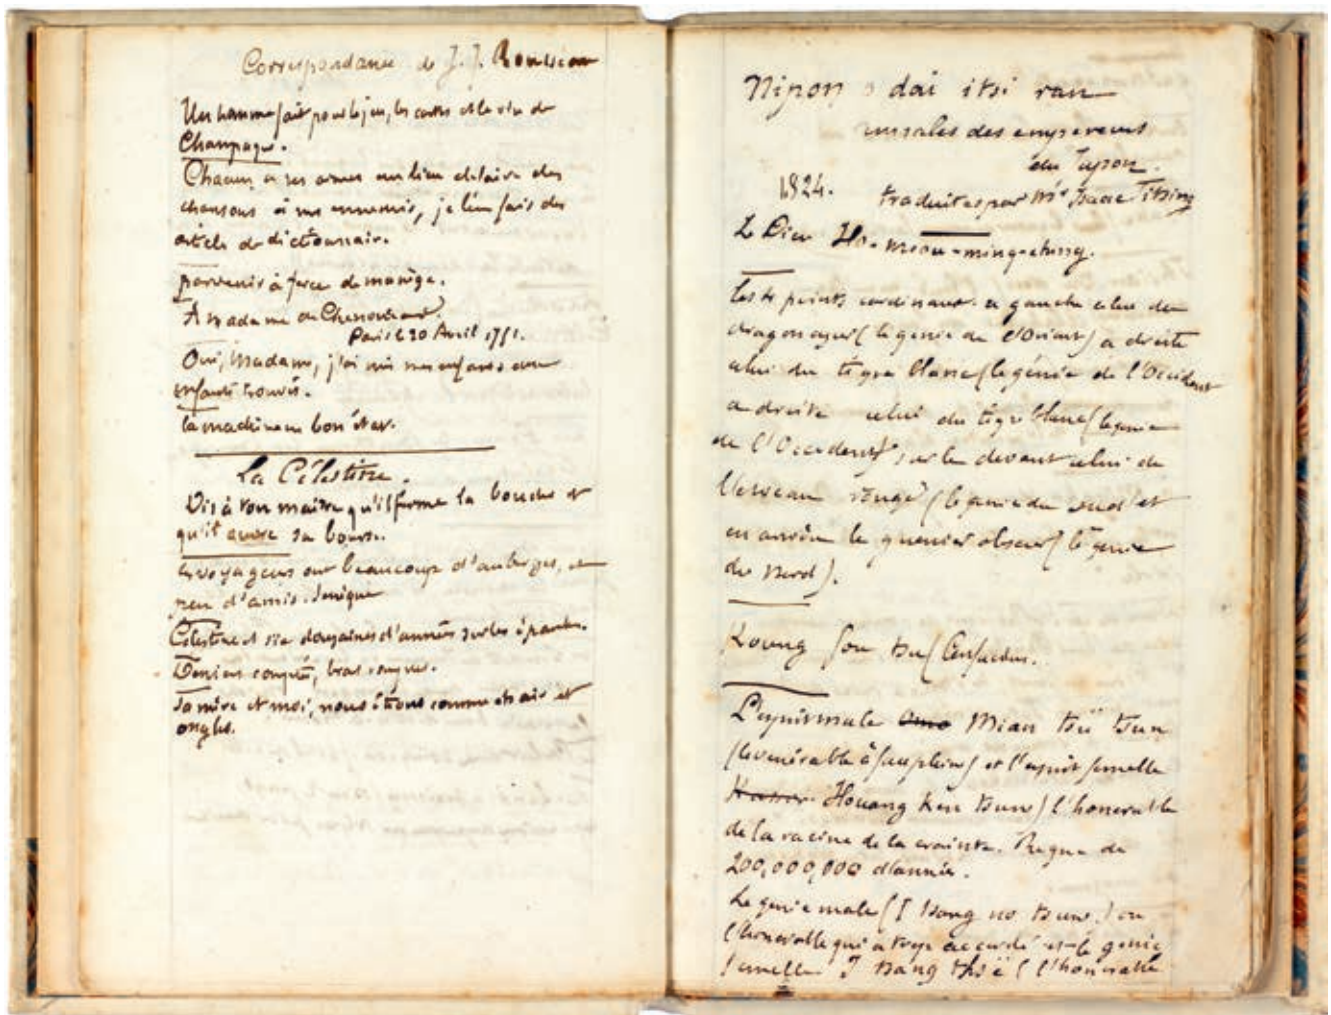 Correspondance de J. J. Rousseau
Un homme fait pour le jeu, les cartes et le vin de
Champagne.
Chacun a ses armes au lieu de faire des
chansons à mes ennemis, je leur fais des
articles de dictionnaire.
parvenir à force de manège.
A madame de Chenonceaux.
Paris le 20 Avril 1751.
Oui, Madame, j'ai mis mes enfans aux
enfants trouvés.
la machine en bon état.
La Célestine.
Dis à ton maître qu'il ferme la bouche et
qu'il ouvre sa bourse.
les voyageurs ont beaucoup d'auberges, et
peu d'amis. Senique
Célestine et six douzaines d'années sur les épaules.
Deniers comptés, bras rompus.
Ta mère et moi, nous étions comme chair et
ongles.
Nipon o dai itsi ran
annales des empereurs
du Japon.
1824. traduites par Mr Isaac Titsing
Le Dieu Ho-meou-ming-
les 4 points cardinaux. a gauche celui du
dragon azur (le génie de l'Orient) a droite
celui du tigre blanc (le génie de l'Occident
a droite celui du tigre blanc (le génie
de l'Occident) sur le devant celui de
l'oiseau rouge (le genie du sud) et
en arrière le guerrier obscur (le génie
du Nord).
Koung fou tsu (Confucius.
L'esprit male Ono Mian tsü tsun
(le vénérable à ) et l'esprit femelle
Houang ken tsun) l'honorable
de la racine de la crainte. Regne de
200,000,000 d'années.
Le genie male (I tsang no tsun.) ou
l'honorable qui a trop accordé et le genie
femelle I tsang thsé (l'honorable